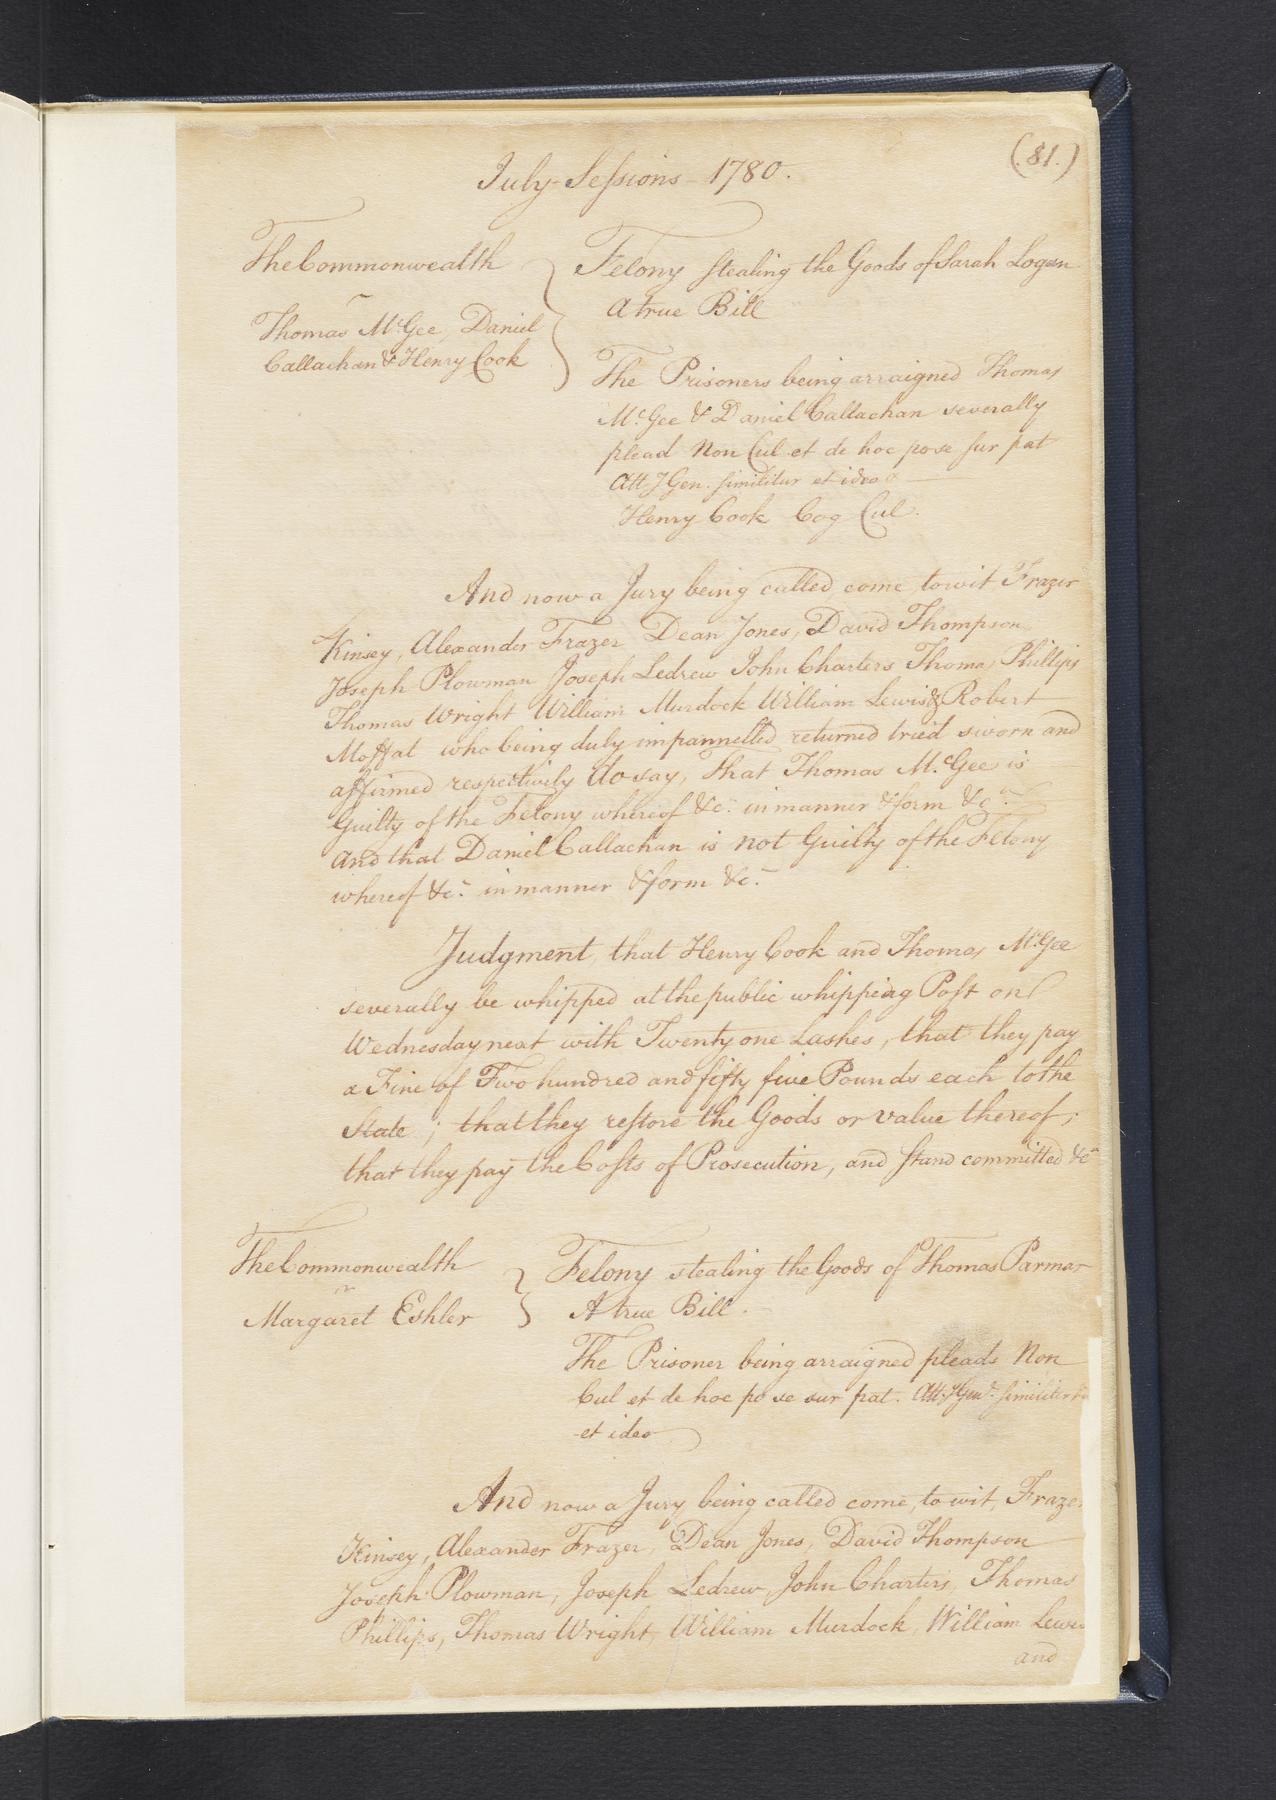 (81.)
July-Sessions - 1780.
The Commonwealth
v
Thomas McGee, Daniel
Callachan & Henry Cook
Felony stealing the Goods of Sarah Logan
A true Bill
The Prisoners being arraigned Thomas
McGee & Daniel Callachan severally
plead Non Cul et de hoc pose sur pat
Att. J Gen. similitur et ideo
Henry Cook Cog Cul.
And now a Jury being called come, to wit Frazer
Kinsey, Alexander Frazer Dean Jones, David Thompson
Joseph Plowman Joseph Ledrew John Charters Thomas Phillips
Thomas Wright William Murdock William Lewis & Robert
Moffat who being duly impannelled returned tried sworn and
affirmed respectively do say, That Thomas McGee is
Guilty of the Felony whereof &c. in manner & form &c.
And that Daniel Callachan is not Guilty of the Felony
whereof &c. in manner & form &c.
Judgment, that Henry Cook and Thomas McGee
severally be whipped at the public whipping Post on
Wednesday next with Twenty one Lashes, that they pay
a Fine of Two hundred and fifty five Pounds each to the
State; that they restore the Goods or value thereof;
that they pay the Costs of Prosecution, and stand committed &c
The Commonwealth
v
Margaret Eshler
Felony stealing the Goods of Thomas Parmar
A true Bill.
The Prisoner being arraigned pleads Non
Cul et de hoc po se sur pat. Att. J Genl. similiter
et ideo
And now a Jury being called come, to wit, Frazer
Kinsey, Alexander Frazer, Dean Jones, David Thompson
Joseph Plowman, Joseph Ledrew, John Charters, Thomas
Phillips, Thomas Wright, William Murdock, William Lewis
and